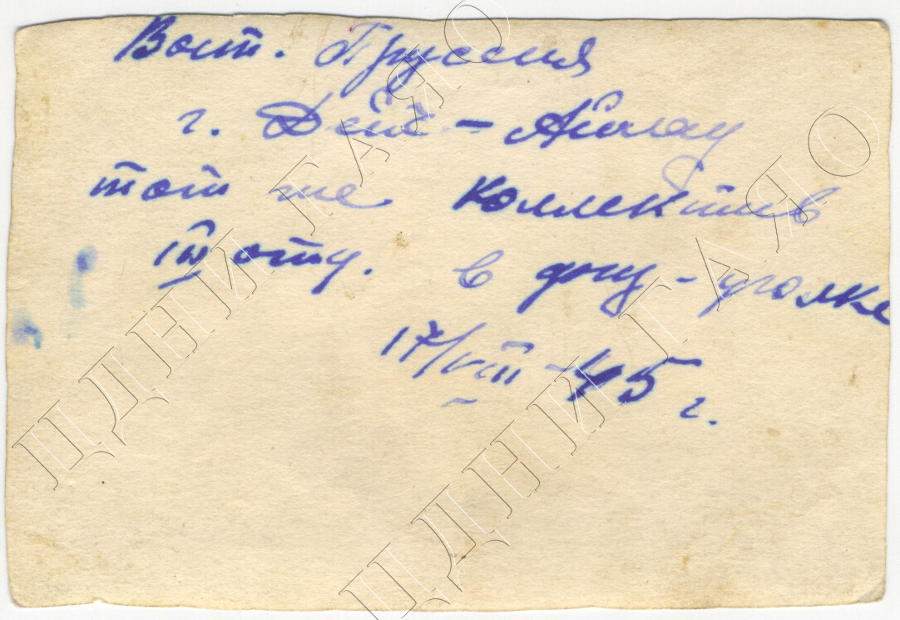 Вост. Пруссия
г. Дейч-Айлау
тот же коллектив
IV отд. в
17/VIII-45 г.
ЦДНИ ГАЯО
ЦДНИ ГАЯО